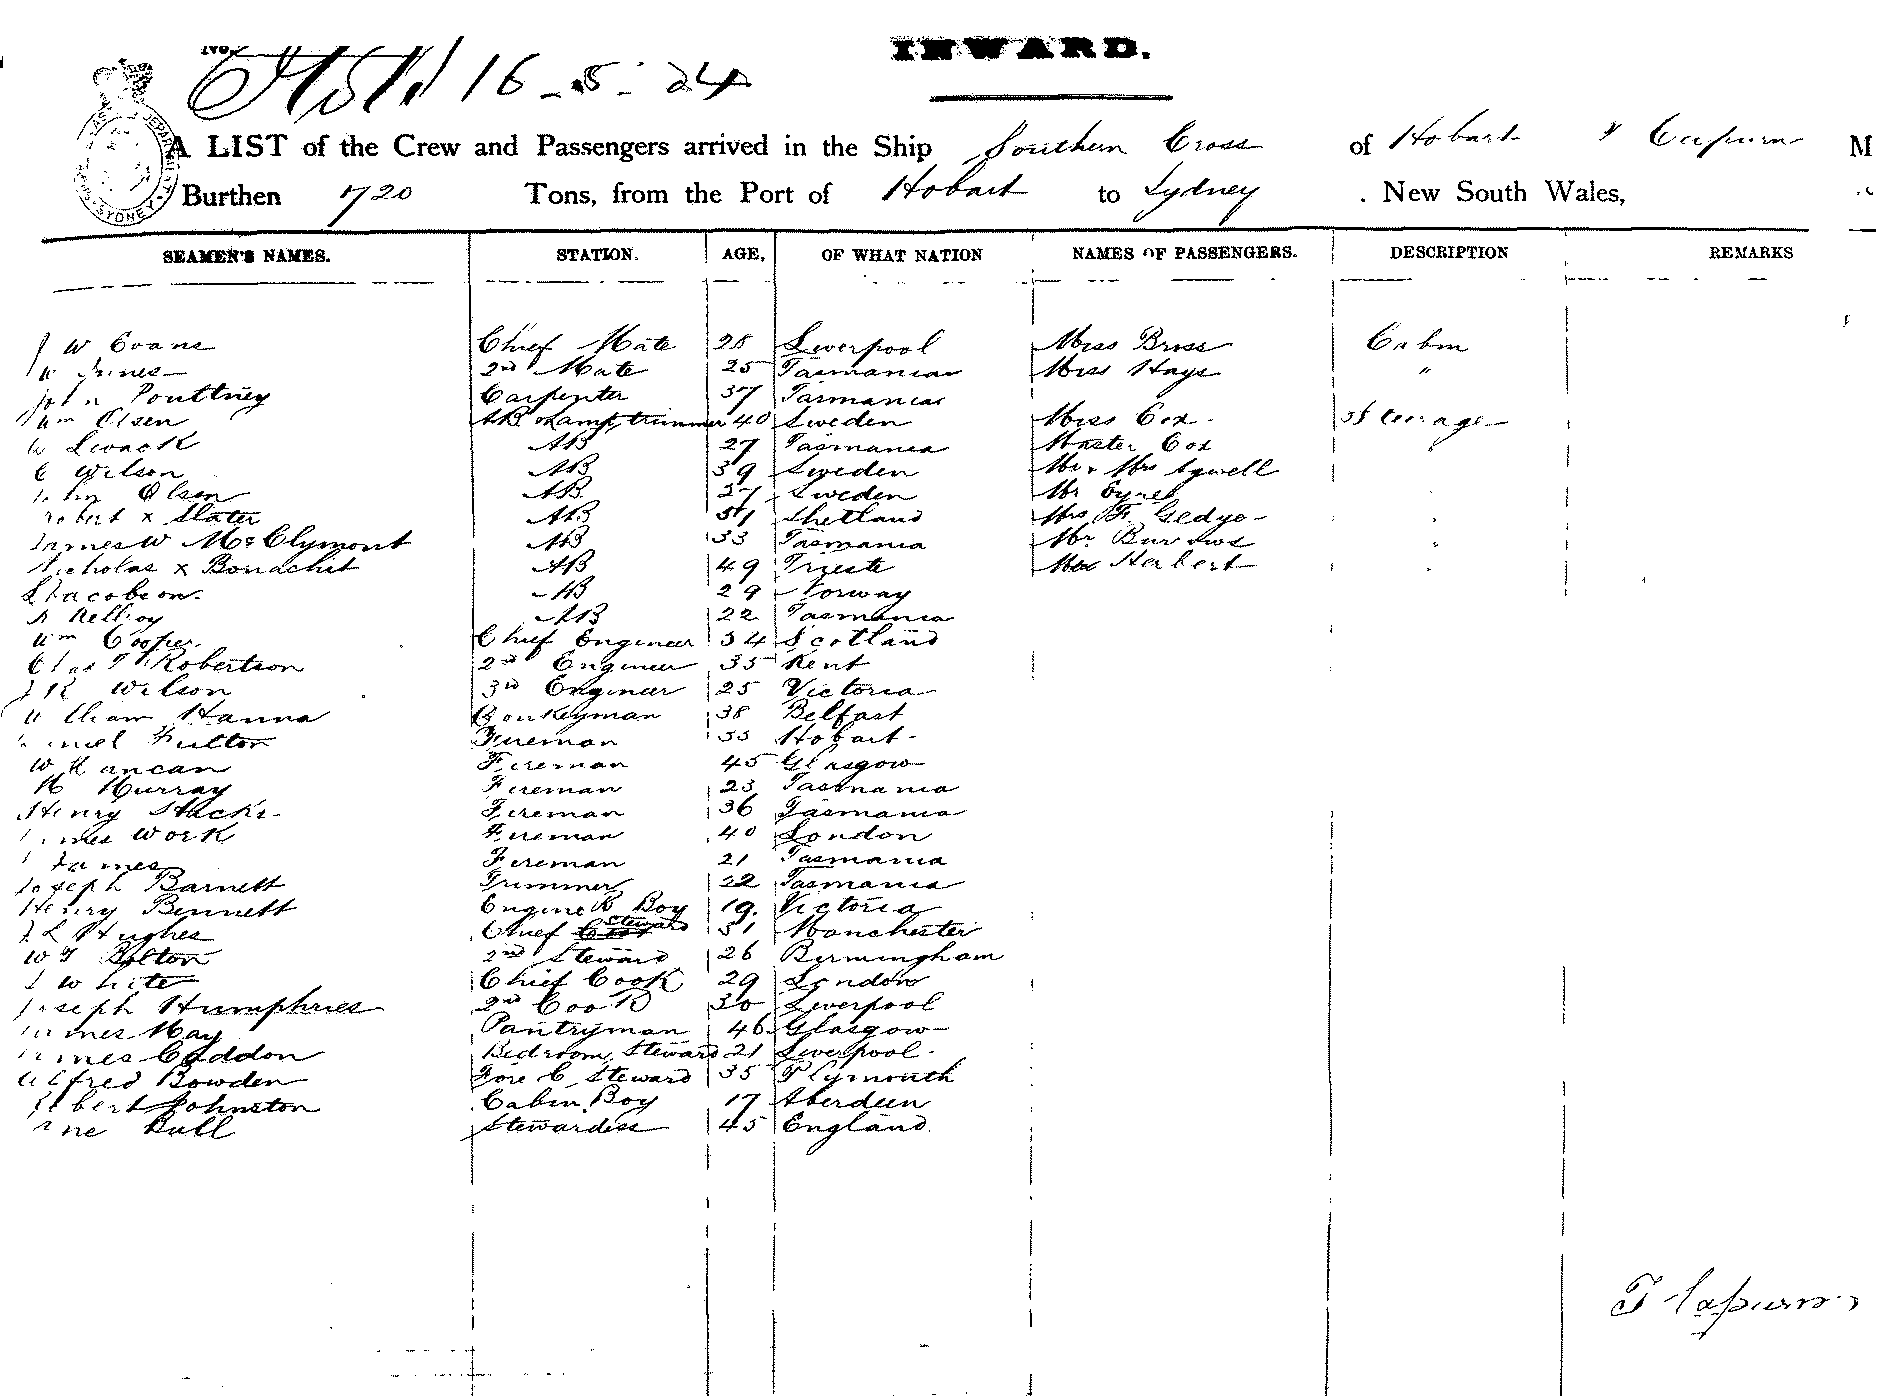 INWARD.
No. 16-5-24
A LIST of the Crew and Passengers arrived in the Ship Southern Cross of Hobart M
Burthen 1720 Tons, from the Port of Hobart to Sydney . New South Wales,
SEAMEN'S NAMES. STATION. AGE, OF WHAT NATION NAMES OF PASSENGERS. DESCRIPTION REMARKS
W Evans Chief Mate 28 Liverpool Miss Cabin
2nd Mate 25 Tasmania Miss Hays "
John Poultney Carpenter 37 Tasmania
Wm Olsen AB Lamp trimmer 40 Sweden Miss Cox Steerage
AB 27 Tasmania Master Cox "
C Wilson AB 39 Sweden Mr & Mrs
John Olsen AB 27 Sweden Mr
Robert x Slater AB 51 Shetland Mrs F. Gedye
James W McClymont AB 33 Tasmania Mr Burrows
Nicholas x AB 49 Trieste Herbert
Jacobson AB 29 Norway
AB 22 Tasmania
Wm Cooper Chief Engineer 34 Scotland
Robertson 2nd Engineer 35 Kent
Wilson 3rd Engineer 25 Victoria
William Hanna Donkeyman 38 Belfast
Fulton Fireman 33 Hobart
W Fireman 45 Glasgow
H Murray Fireman 23 Tasmania
Henry Fireman 36 Tasmania
James Work Fireman 40 London
James Fireman 21 Tasmania
Joseph Barnett Trimmer 22 Tasmania
Henry Bennett Engine R Boy 19. Victoria
Hughes Chief Steward 51 Manchester
W T Bolton 2nd Steward 26 Birmingham
White Chief Cook 29 London
Joseph Humphries 2nd Cook 30 Liverpool
James May Pantryman 46 Glasgow
James Caddon Bedroom Steward 21 Liverpool
Alfred Bowden Fore C Steward 35 Plymouth
Johnston Cabin Boy 17 Aberdeen
Bull Stewardess 45 England